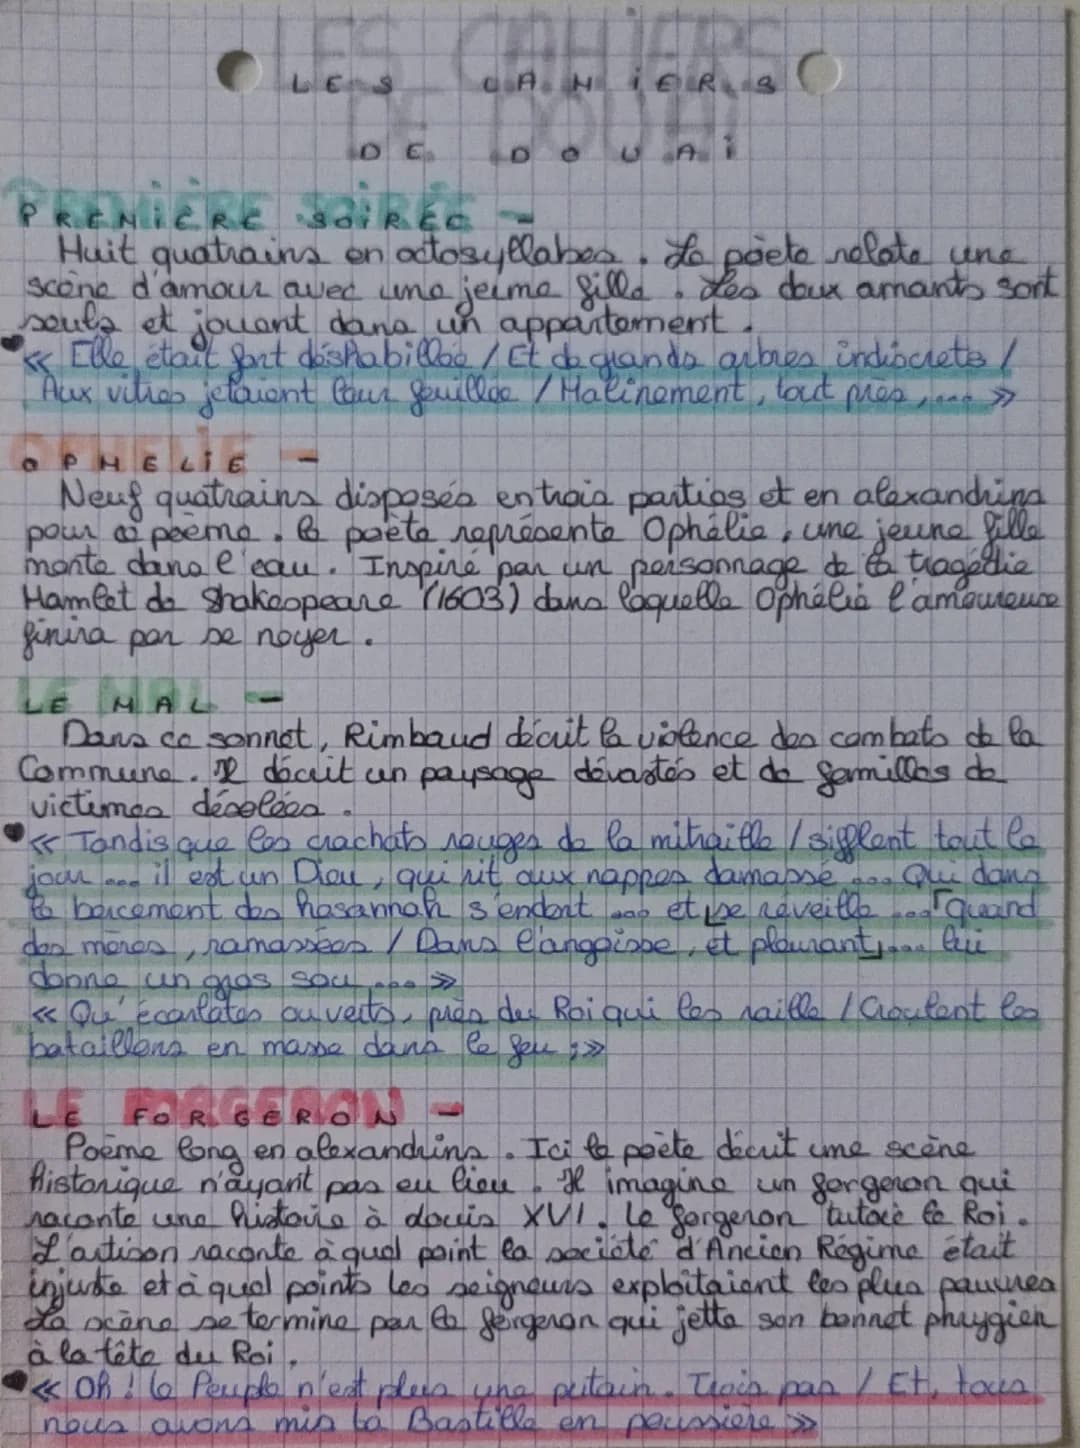 LES CAHIERS
DE DOUAI
LES CAHIERS
DE DOUAI
PREMIÈRE SOIRÉE -
Huit quatrains en octosyllabes. Le poète relate une
scène d'amour avec une jeune fille. Les deux amants sont
seuls et jouent dans un appartement.
« Elle était fort déshabillée / Et de grands arbres indiscrets /
Aux vitres jetaient leur feuillée / Malinement, tout près,... »
OPHELIE -
Neuf quatrains disposés en trois parties et en alexandrins
pour ce poème. Le poète représente Ophélie, une jeune fille
morte dans l'eau. Inspiré par un personnage de la tragédie
Hamlet de Shakespeare (1603) dans laquelle Ophélie l'amoureuse
finira par se noyer.
LE MAL -
Dans ce sonnet, Rimbaud décrit la violence des combats de la
Commune. Il décrit un paysage dévastés et de familles de
victimes désolées.
« Tandis que les crachats rouges de la mitraille / sifflent tout le
jour ... il est un Dieu, qui rit aux nappes damassé ... Qui dans
le bercement des hosannah s'endort ... et se réveille ... [quand
des mères, ramassées / Dans l'angoisse, et pleurant],... lui
donne un gros sou,... »
« Qu'écarlates ou verts, près du Roi qui les raille / Croulent les
bataillons en masse dans le feu ; »
LE FORGERON -
Poème long en alexandrins. Ici le poète décrit une scène
historique n'ayant pas eu lieu. Il imagine un forgeron qui
raconte une histoire à Louis XVI. Le forgeron tutoie le Roi.
L'artison raconte à quel point la société d'Ancien Régime était
injuste et à quel points les seigneurs exploitaient les plus pauvres
La scène se termine par le forgeron qui jette son bonnet phrygien
à la tête du Roi.
« Oh ! le Peuple n'est plus une putain. Trois pas / Et, tous
nous avons mis ta Bastille en poussière »